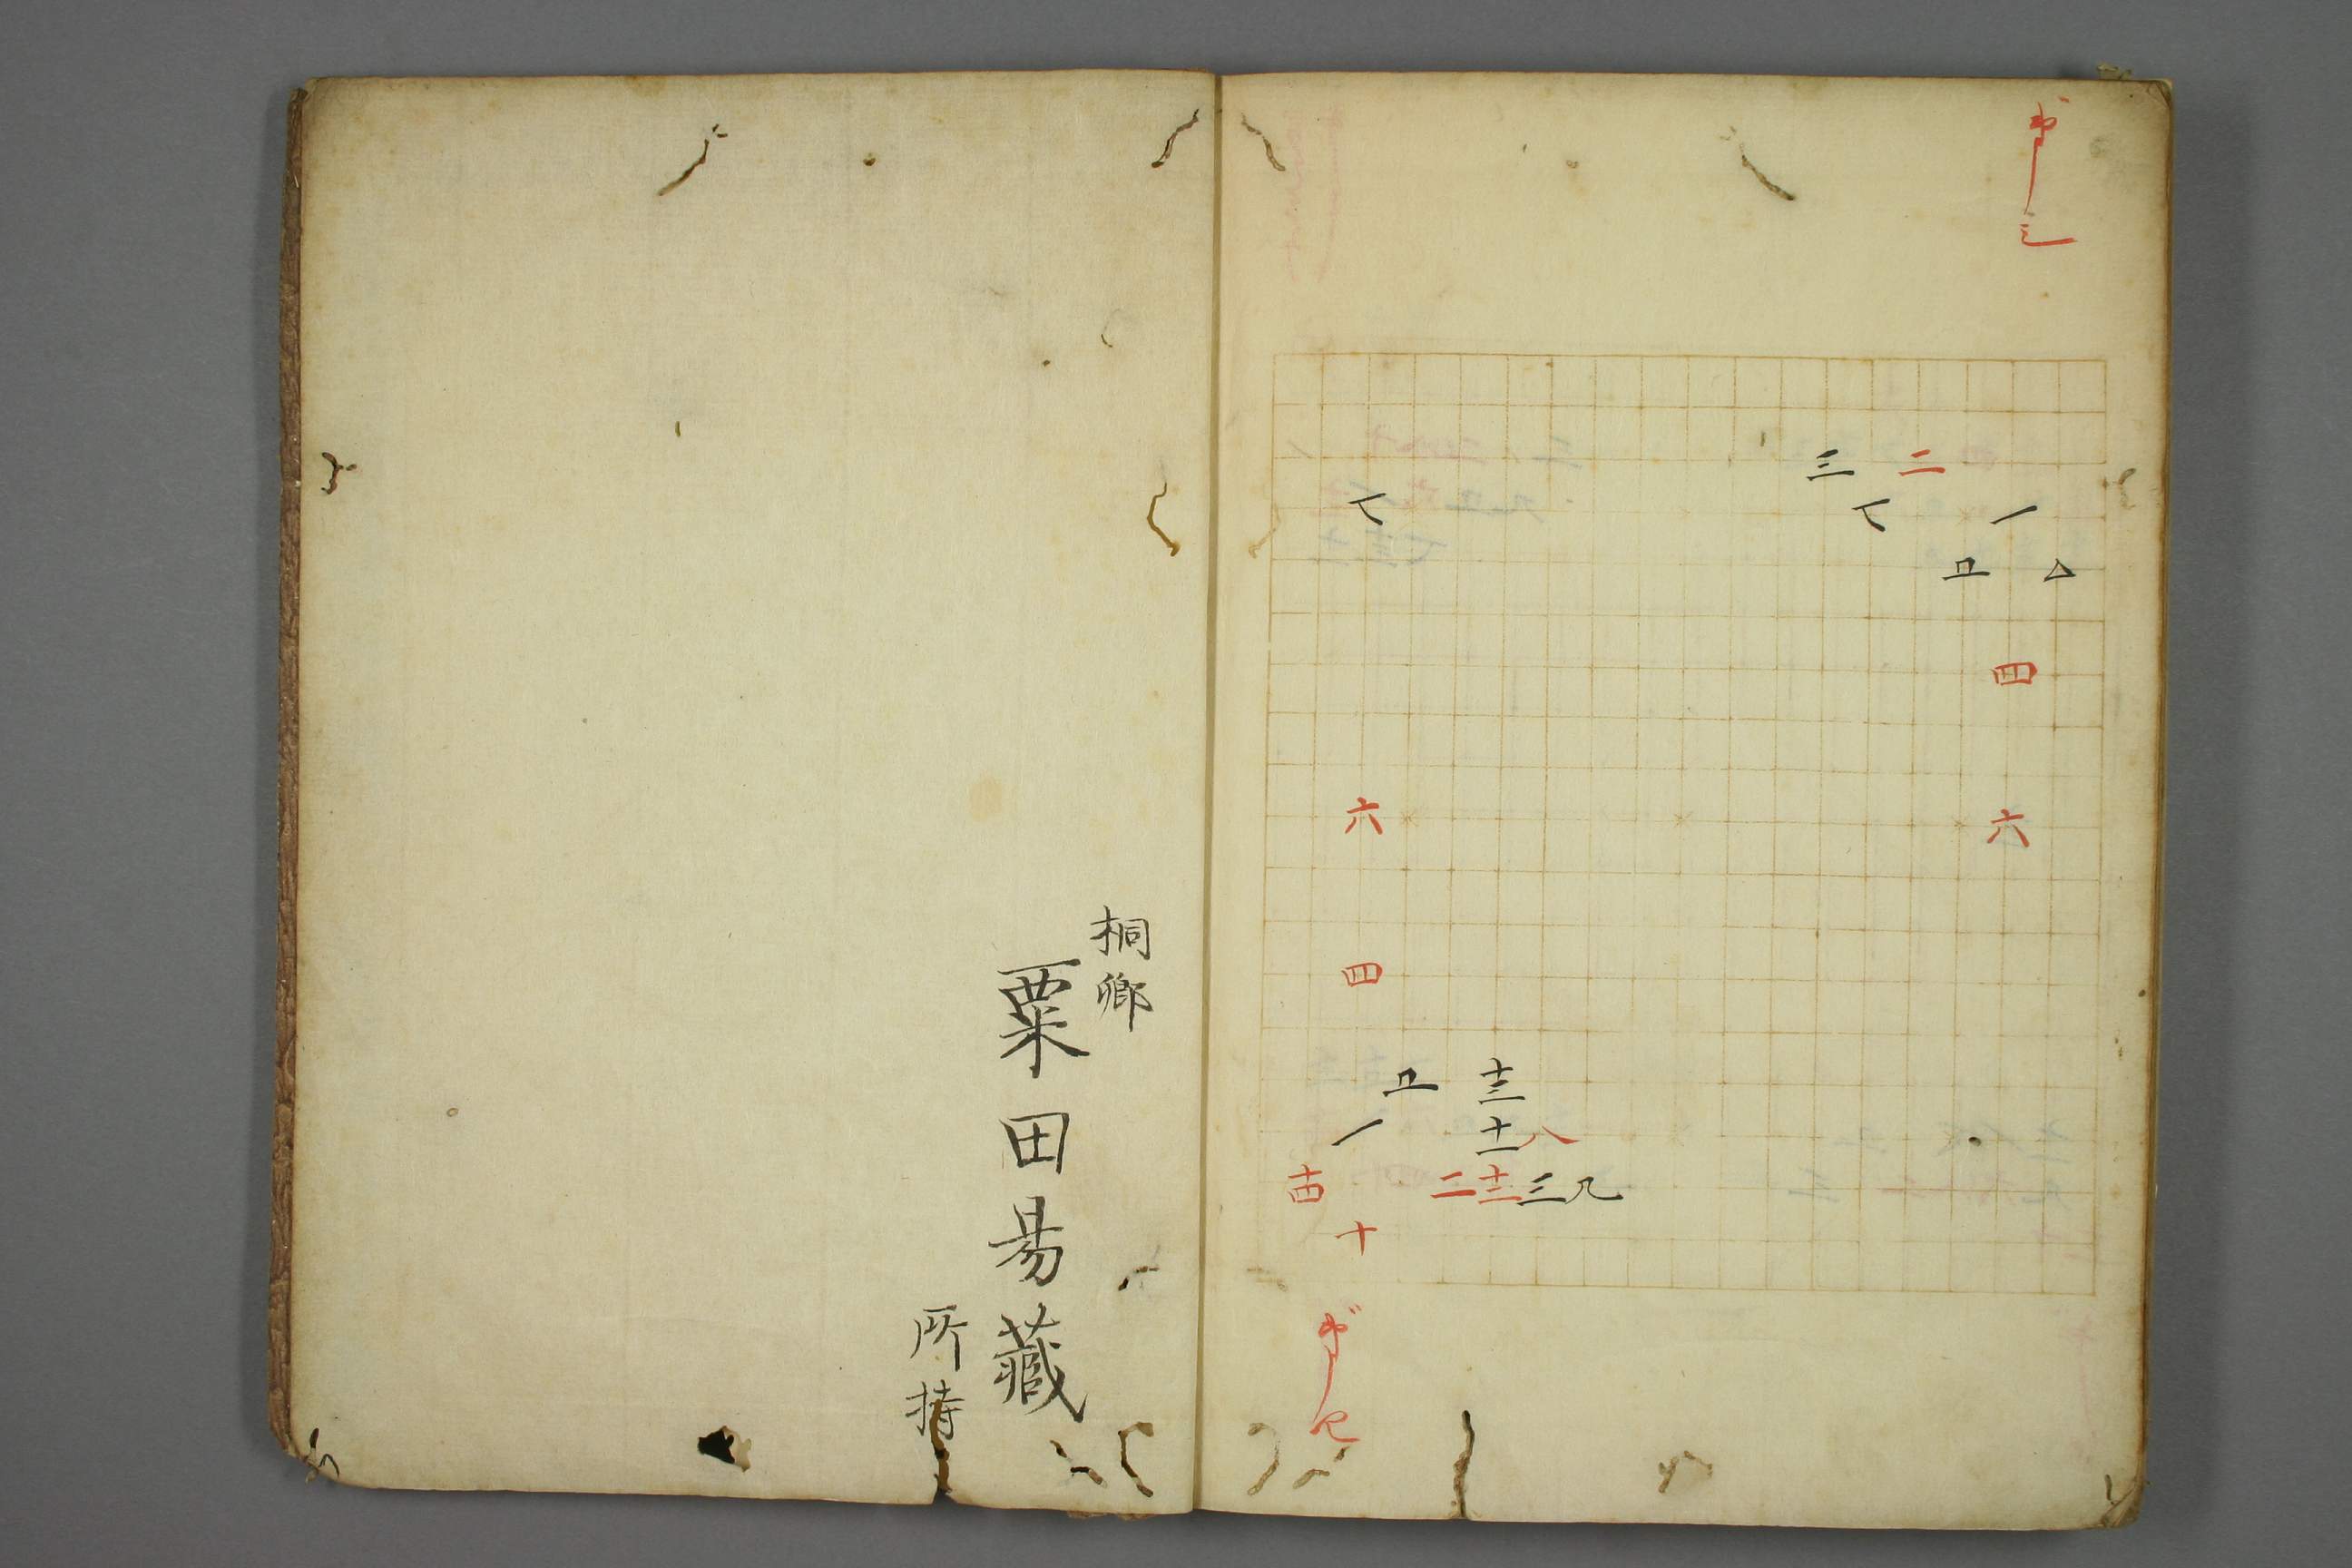 三 二
七 七 一
五
四
六 六
四
五 十三
一 十一 八
十四 二 十二 三 九
十
桐郷
粟田昜藏
所持